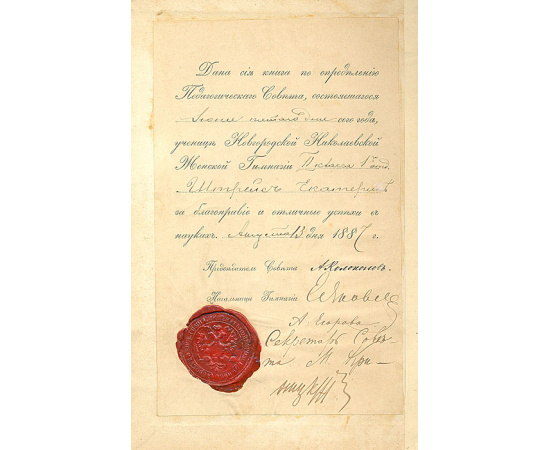 Дана сія книга по опредѣленію
Педагогическаго Совѣта, состоявшагося
Іюня дня сего года,
ученицѣ Новгородской Николаевской
Женской Гимназіи II класса 1го отд.
Штрейсъ Екатеринѣ
за благонравіе и отличные успѣхи въ
наукахъ. Августа 13 дня 1887 г.
Предсѣдатель Совѣта
Начальница Гимназіи
А Егорова
Секретарь Совѣ-
та М